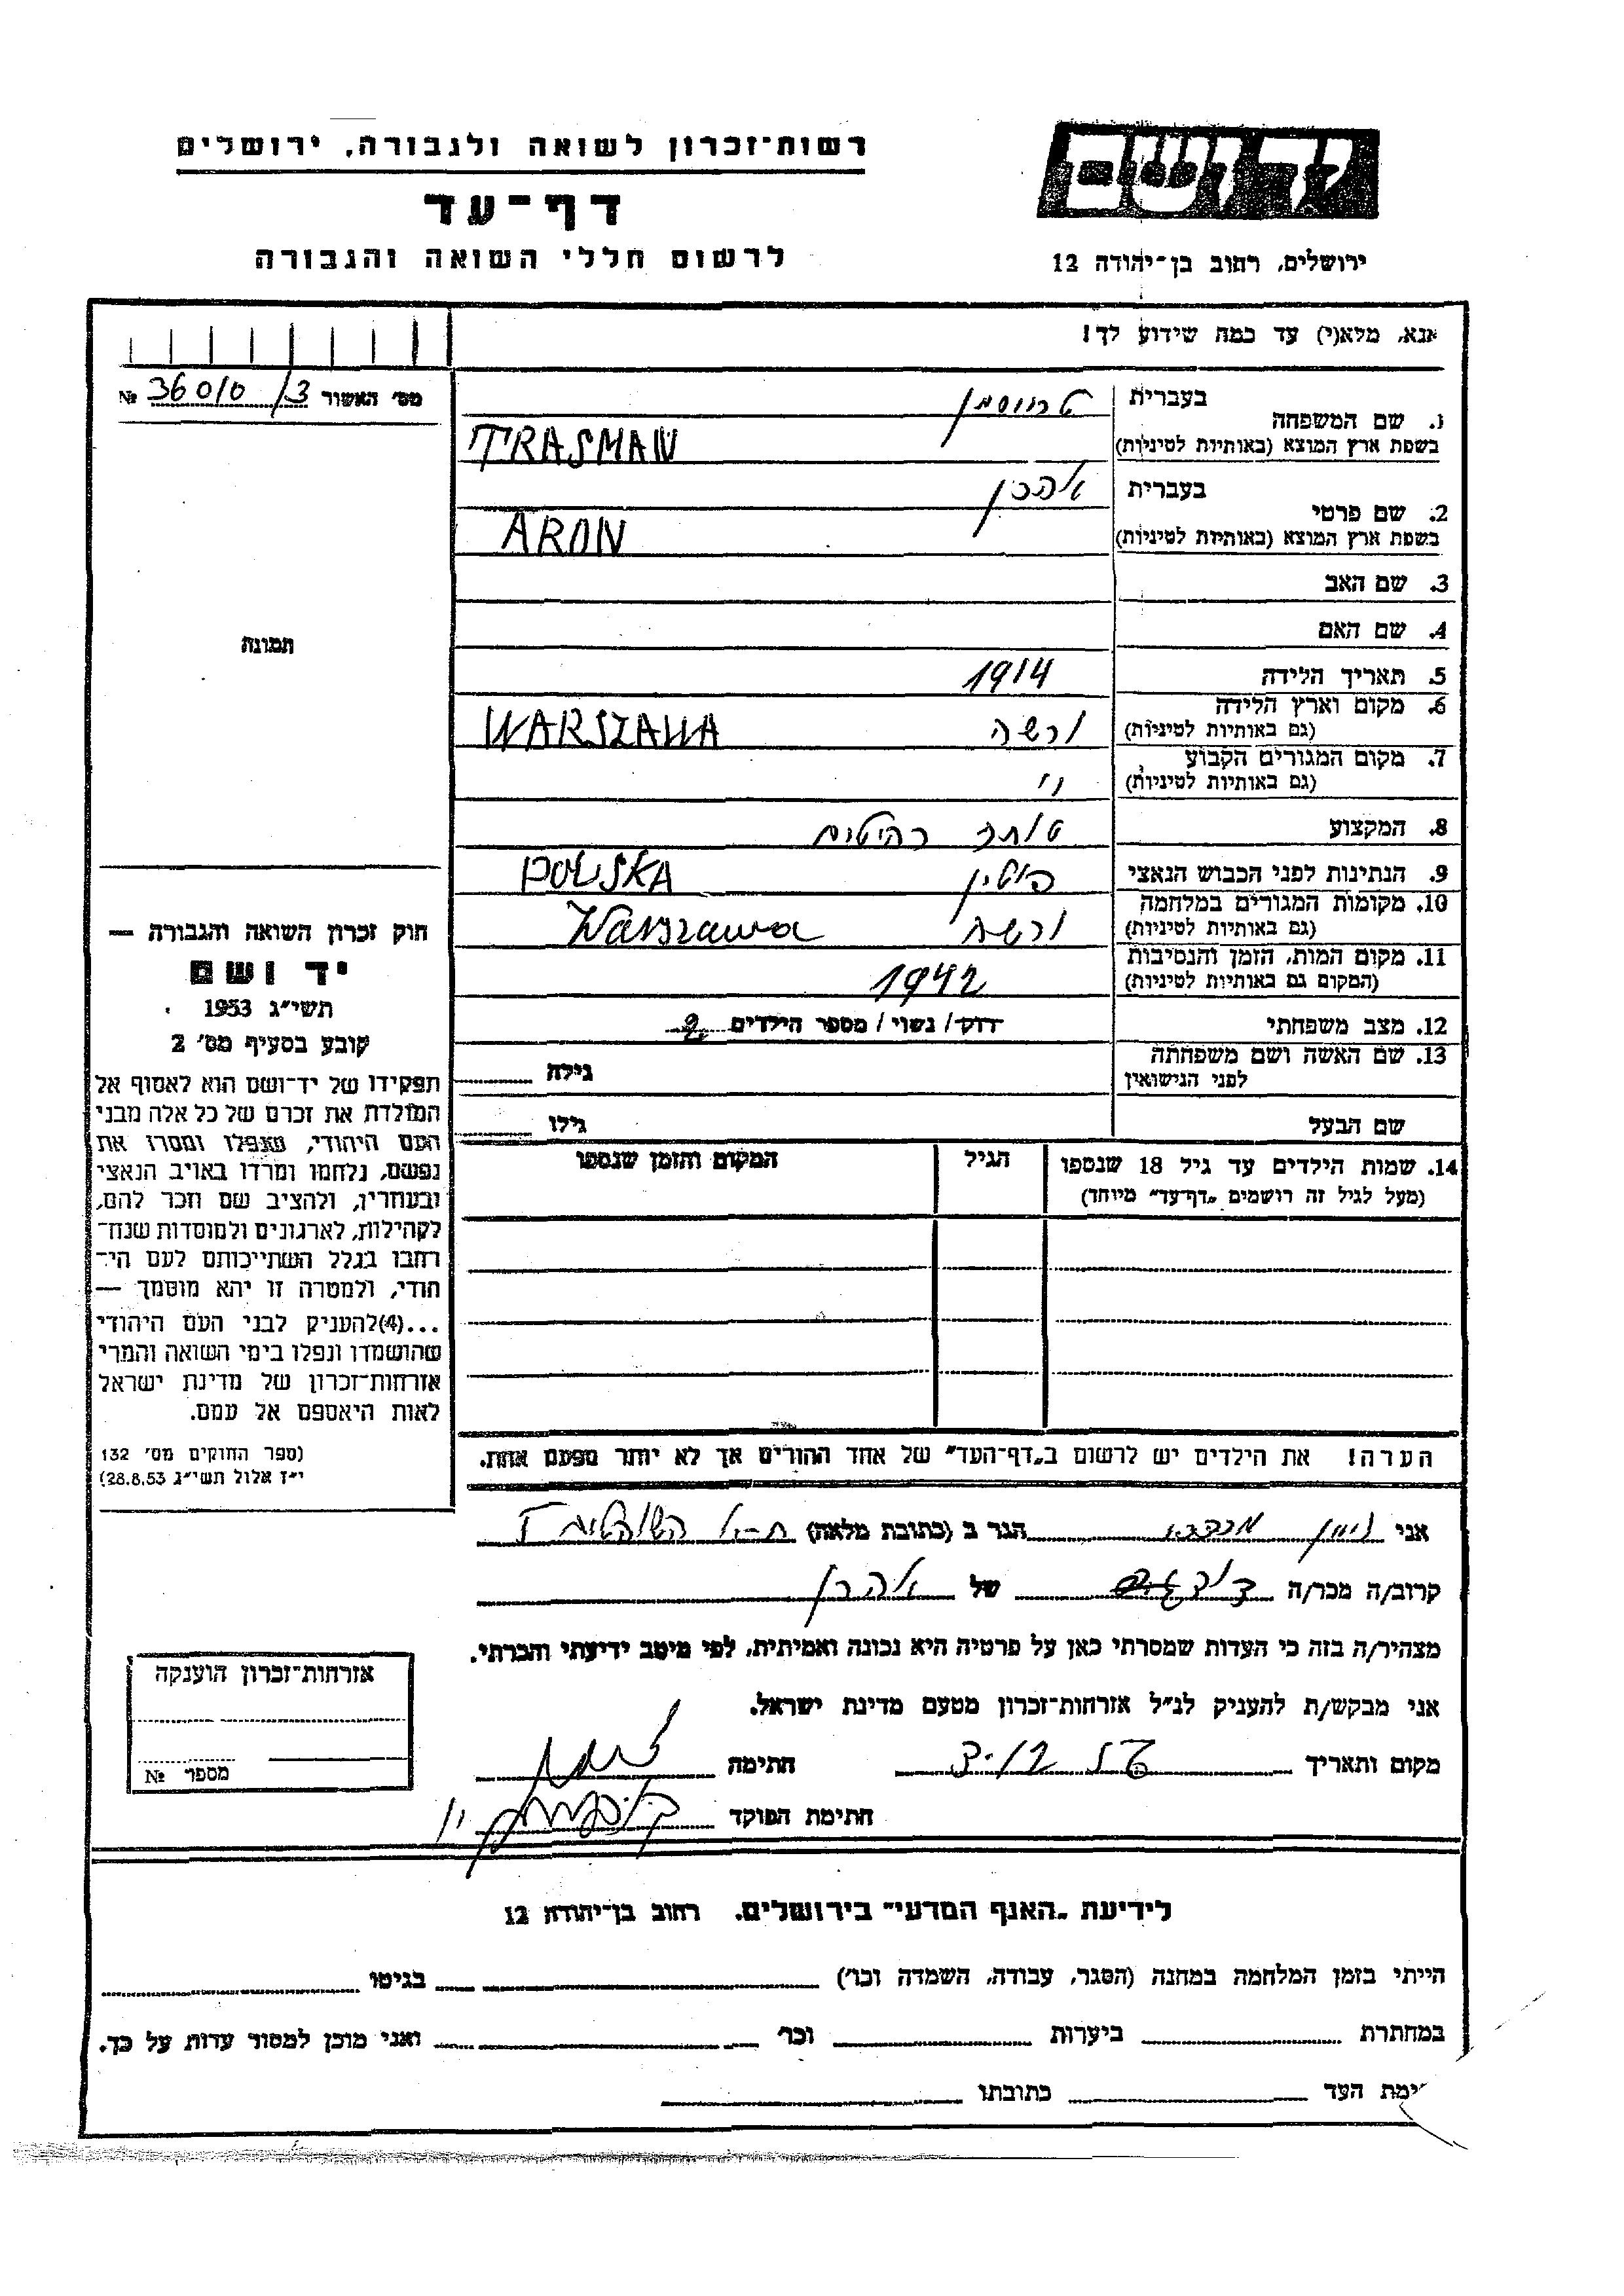 רשות־זכרון לשואה ולגבורה, ירושלים
דף־עד
לרשום חללי השואה והגבורה
ידושם
ירושלים, רחוב בן־יהודה 12
אנא, מלא(י) עד כמה שידוע לך!
מס׳ האשור 36010/3 №
תמונה
חוק זכרון השואה והגבורה —
יד ושם
תשי״ג 1953
קובע בסעיף מס׳ 2
תפקידו של יד־ושם הוא לאסוף אל
המולדת את זכרם של כל אלה מבני
העם היהודי, שנפלו ומסרו את
נפשם, נלחמו ומרדו באויב הנאצי
ובעוזריו, ולהציב שם וזכר להם,
לקהילות, לארגונים ולמוסדות שנח־
רחבו בגלל השתייכותם לעם הי־
הודי, ולמטרה זו יהא מוסמך —
...(4)להעניק לבני העם היהודי
שהושמדו ונפלו בימי השואה והמרי
אזרחות־זכרון של מדינת ישראל
לאות היאספם אל עמם.
(ספר החוקים מס׳ 132
י״ז אלול תשי״ג 28.8.53)
בעברית
1. שם המשפחה
בשפת ארץ המוצא (באותיות לטיניות) TRASMAN
בעברית אהרן
2. שם פרטי
בשפת ארץ המוצא (באותיות לטיניות) ARON
3. שם האב
4. שם האם
5. תאריך הלידה 1914
6. מקום וארץ הלידה ורשה WARSZAWA
(גם באותיות לטיניות)
7. מקום המגורים הקבוע
(גם באותיות לטיניות) "
8. המקצוע רהיטים
9. הנתינות לפני הכבוש הנאצי פולין POLSKA
10. מקומות המגורים במלחמה ורשה Warszawa
(גם באותיות לטיניות)
11. מקום המות, הזמן והנסיבות 1942
(המקום גם באותיות לטיניות)
12. מצב משפחתי רוק/ נשוי / מספר הילדים 2
13. שם האשה ושם משפחתה גילה
לפני הנישואין
שם הבעל גילו
14. שמות הילדים עד גיל 18 שנספו הגיל המקום והזמן שנספו
(מעל לגיל זה רושמים „דף־עד״ מיוחד)
הערה! את הילדים יש לרשום ב„דף־העד״ של אחד ההורים אך לא יותר מפעם אחת.
אני הגר ב (כתובת מלאה)
קרוב/ה מכר/ה של אהרן
מצהיר/ה בזה כי העדות שמסרתי כאן על פרטיה היא נכונה ואמיתית, לפי מיטב ידיעתי והכרתי.
אני מבקש/ת להעניק לנ״ל אזרחות־זכרון מטעם מדינת ישראל.
מקום ותאריך חתימה
חתימת הפוקד
אזרחות־זכרון הוענקה
מספר №
לידיעת „האגף המדעי״ בירושלים, רחוב בן־יהודה 12
הייתי בזמן המלחמה במחנה (הסגר, עבודה, השמדה וכו׳) בגיטו
במחתרת ביערות וכו׳ ואני מוכן למסור עדות על כך.
ימת העד כתובתו